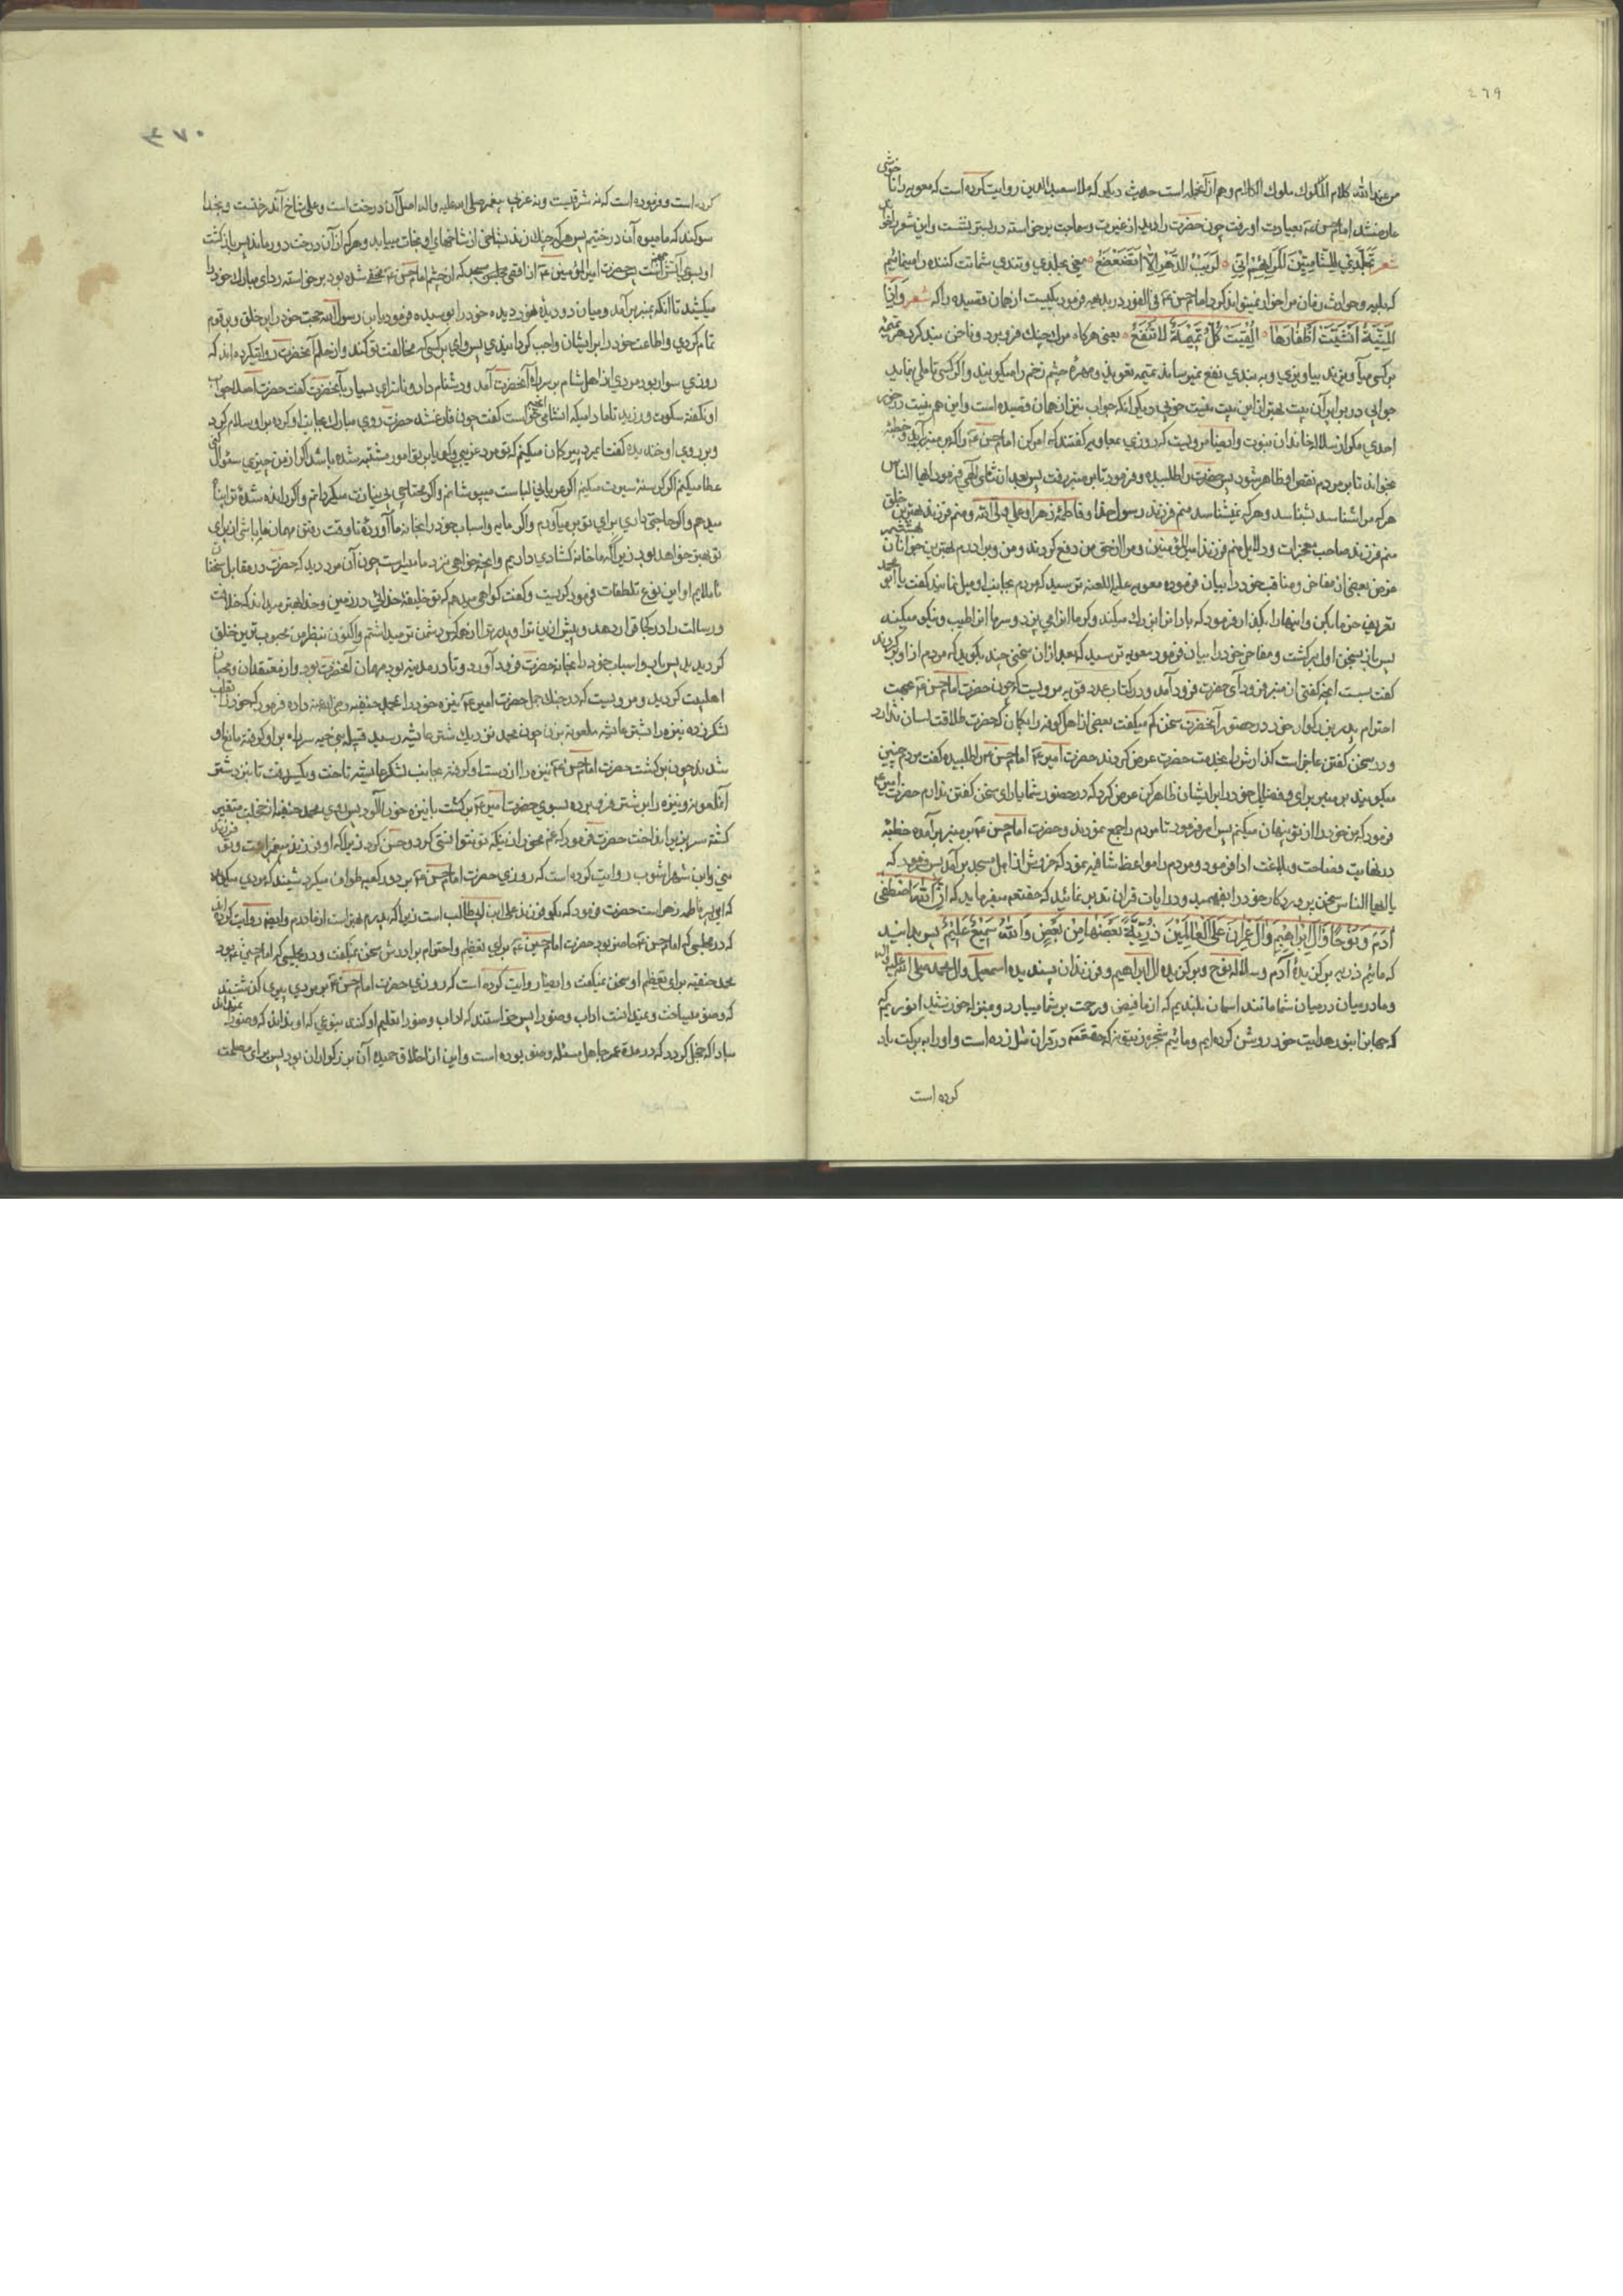 ٤٦٩
من عند الله کلام الملوک ملوک الکلام وهم از آنجمله است حدیث دیگر که ملا سعید الدین روایت کرده است که معویه را ناخوشی
عارض شد امام حسن ع بعیادت او رفت چون حضرت را دید از غیرت وسماجت برخواسته در بستر نشست و این شعر را
شعر تجلدی للشامتین اریهم انی لریب الدهر لا اتضعضع یعنی جلدی وتندی شماتت کننده را مینمائیم
که بلیه وحوادث زمان مرا خوار نمیتواند کرد امام حسن ع فی الفور در بدیهه فرمود یک بیت از همان قصیده را که شعر واذا
المنیة انشبت اظفارها الفیت کل تمیمة لا تنفع یعنی هرگاه مرگ چنگ فرو برد وناخن بند کرد هر تمیمه
بر کسی بیاویزند بیاویزی و به بندی نفع نمیرساند تمیمه تعویذ ومهره چشم زخم را میگویند واگر کسی تاملی نماید
جوابی در برابر آن بیت بهتر از این بیت نیست خوبی دیگر آنکه جواب نیز از همان قصیده است واین هم نیست در خور
احدی مگر از سلاله خاندان نبوت وایضا مرویست که روزی بمعاویه گفتند که امر کن امام حسن ع را که بر منبر برآید وخطبه
بخواند تا بر مردم نقص او ظاهر شود پس حضرت را طلبیده وفرمود تا بر منبر رفت پس بعد از ثنای الهی فرمود ایها الناس
هرکه مرا شناسد بشناسد وهرکه نمیشناسد منم فرزند رسول خدا وفاطمه زهرا وعلی ولی الله ومنم فرزند بهترین خلق
منم فرزند صاحب معجزات ودلایل منم فرزند امیرالمؤمنین ومرا از حق من دفع کردند ومن وبرادرم بهترین جوانان بهشتیم
غرض بعضی از مفاخر ومناقب خود را بیان فرمود معویه علیه اللعنه ترسید که مردم بجانب او میل نمایند گفت یا ابا محمد
تعریف خرما بکن واینها را بگذار فرمود که باد آنرا بزرگ میکند وگرما آنرا می پزد وسرما آنرا طیب ونیکو میکند
پس باز بسخن اول برگشت ومفاخر خود را بیان فرمود معویه ترسید که بعد از آن سخنی چند بگوید که مردم از او برگردند
گفت بس است آنچه گفتی از منبر فرود آی حضرت فرود آمد ودر کتاب عدد قویه مرویست که چون حضرت امام حسن ع بجهت
احترام پدر بزرگوار خود در حضور آنحضرت سخن کم میگفت بعضی از اهل کوفه را گمان که حضرت طلاقت لسان ندارد
ودر سخن گفتن عاجز است گذارش را بخدمت حضرت عرض کردند حضرت امیر ع امام حسن ع را طلبیده گفت مردم چنین
میگویند بر منبر برای وفضایل خود را بر ایشان ظاهر کن عرض کرد که در حضور شما یارای سخن گفتن ندارم حضرت امیر ع
فرمود که من خود را از تو پنهان میکنم پس امر فرمود تا مردم را جمع نمودند وحضرت امام حسن ع بر منبر برآمده خطبه
در نهایت فصاحت وبلاغت ادا فرمود ومردم را مواعظ شافیه نمود که خروش از اهل مسجد برآمد پس فرمود که
یا ایها الناس سخن پروردگار خود را بفهمید ودر آیات قرآن تدبر نمائید که حقتعم میفرماید که ان الله اصطفی
ادم ونوحا وآل ابراهیم وآل عمران علی العالمین ذریة بعضها من بعض والله سمیع علیم پس بدانید
که مائیم ذریه برگزیده آدم وسلاله نوح وبرگزیده آل ابراهیم وفرزندان پسندیده اسمعیل وآل محمد صلی الله علیه واله
وما در میان شما مانند آسمان بلندیم که از ما فیض ورحمت بر شما میبارد وبمنزله خورشید انوریم که
که جهانرا بنور هدایت خود روشن کرده ایم ومائیم شجره زیتونه که حقتعم در قرآن مثل زده است واورا به برکت یاد
کرده است
٤٧٠
کرده است وفرموده است که نه شرقیست ونه غربی پیغمبر صلی الله علیه واله اصل آن درخت است وعلی شاخ آندرختست وبخدا
سوگند که ما میوه آن درختیم پس هرکه چنگ زند بشاخی از شاخهای او نجات میابد وهرکه از آن درخت دور ماند پس بازگشت
او بسوی آتش جهنم است پس حضرت امیرالمؤمنین ع از اقصی مجلس مسجد که از چشم امام حسن ع مخفی شده بود برخواسته ردای مبارک خود را
میکشید تا آنکه بمنبر برآمد ومیان دو دیده نور دیده خود را بوسیده فرمود یابن رسول الله حجت خود را بر خلق وبر قوم
تمام کردی واطاعت خود را بر ایشان واجب گردانیدی پس وای بر کسی که مخالفت تو کند واز حلم آنحضرت روایتکرده اند که
روزی سوار بود مردی از اهل شام بر سر راه آنحضرت آمد ودشنام داد وناسزای بسیار بآنحضرت گفت حضرت اصلا جواب
او نگفته سکوت ورزید تا مادامیکه آنشامی آنچه خواست گفت چون فارغ شد حضرت روی مبارک بجانب او کرده بر او سلام کرد
وبر روی او خندیده گفت ایمرد پیر گمان میکنم که تو مرد غریبی وگویا بر تو امور مشتبه شده باشد اگر از من چیزی سئوال کنی
عطا میکنم اگر گرسنه سیرت میکنم اگر عریانی لباست میپوشانم واگر محتاجی بی نیازت میگردانم واگر رانده شده ترا پناه
میدهم واگر حاجتی داری برای تو برمیآورم واگر مایه واسباب خود را بخانه ما آورده تا وقت رفتن مهمان ما باشی از برای
تو بهتر خواهد بود زیرا که ما خانه کشادی داریم وآنچه خواهی نزد ما میسر است چون آن مرد دید که حضرت در مقابل سخنان
ناملایم او این نوع تلطفات فرمود گریست وگفت گواهی میدهم که تو خلیفه خدائی در زمین وخدا بهتر میداند که خلافت
ورسالت را در کجا قرار دهد وپیش از این ترا وپدر ترا از همه کس دشمن تر میداشتم واکنون بنظر من محبوب ترین خلق
گردیدید پس اسباب خود را بخانه حضرت فرود آورد وتا در مدینه بود مهمان آنحضرت بود واز معتقدان ومحبان
اهلبیت گردید ومرویست که در جنگ جمل حضرت امیر ع نیزه خود را بمحمد حنفیه رضی الله عنه داده فرمود که خود را بقلب
لشکر زده نیزه را بشتر عایشه ملعونه بزن چون محمد نزدیک شتر عایشه رسید قبیله بنی ضبه سر راه بر او گرفته مانع او
شدند چون برگشت حضرت امام حسن ع نیزه را از دست او گرفته بجانب لشکر عایشه تاخت ویکسر رفت تا نزد شتر
آنملعونه ونیزه را بر شتر فرو برده بسوی حضرت امیر ع برگشت با نیزه خون آلود پس روی محمد حنفیه از خجلت متغیر
گشته سر بزیر انداخت حضرت فرمود که غم مخور از اینکه تو نتوانستی کرد وحسن کرد زیرا که او فرزند پیغمبر است وتو فرزند
منی وابن شهراشوب روایت کرده است که روزی حضرت امام حسن ع بر دور کعبه طواف میکرد شنید که مردی میگوید
که این پسر فاطمه زهراست حضرت فرمود که بگو فرزند علی ابن ابیطالب است زیرا که پدرم بهتر است از مادرم وایضا روایت کرده
که در مجلسی که امام حسن ع حاضر بود حضرت امام حسین ع برای تعظیم واحترام برادرش سخن نمیگفت ودر مجلسی که امام حسین ع بود
محمد حنفیه برای تعظیم او سخن نمیگفت وایضا روایت کرده است که روزی حضرت امام حسن ع بر مردی پیری گذشتند
که وضو میساخت ونمیدانست آداب وضو را پس خواستند که آداب وضو را تعلیم او کنند بنوعی که او بداند که وضو را نمیداند
مبادا که خجل گردد که در مدة عمر جاهل مسئله وضو بوده است واین از اخلاق حمیده آن بزرگواران بود پس برای مصلحت